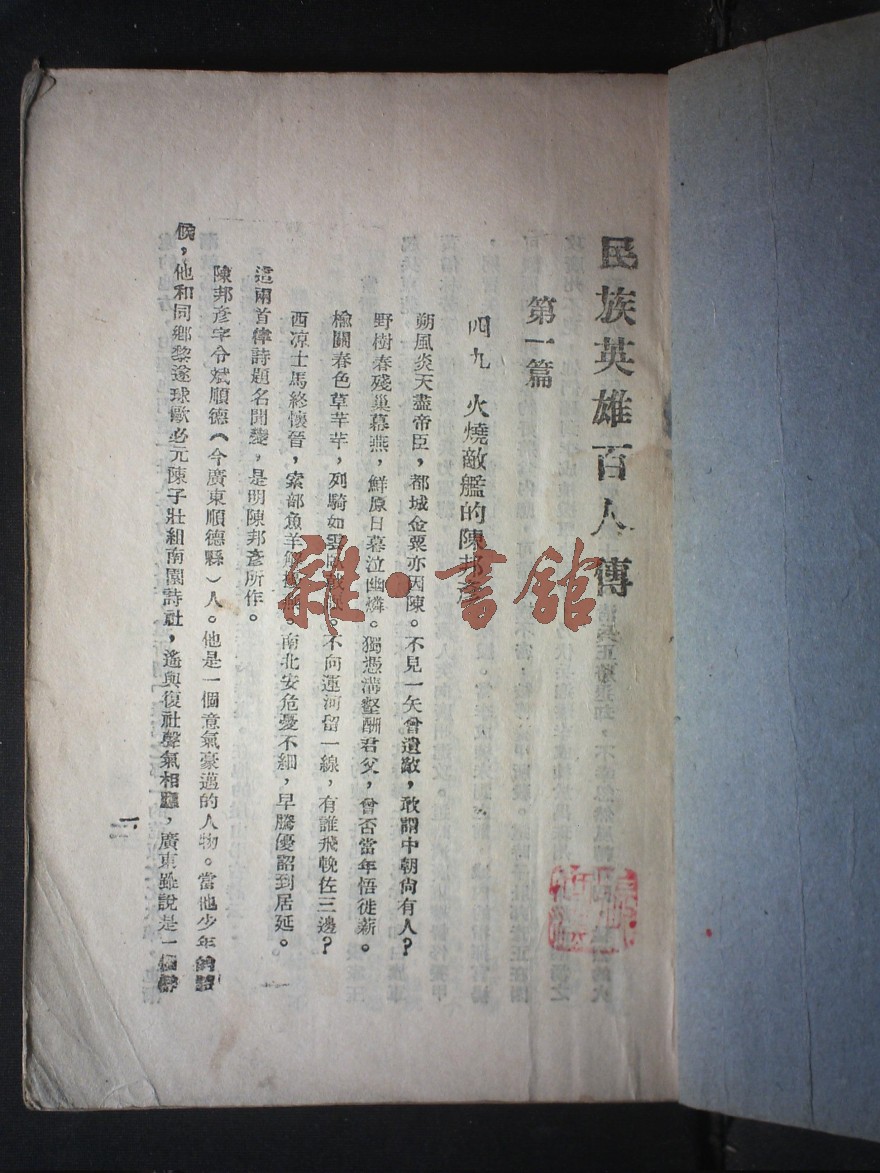 民族英雄百人傳
第一篇
四九 火燒敵艦的陳邦彥
朔風炎天盡帝臣，都城金粟亦因陳。不見一矢曾遺敵，敢謂中朝尙有人？
野樹春殘巢幕燕，鮮原日暮泣幽燐。獨憑溝壑酬君父，曾否當年悟徙薪。
楡關春色草芊芊，列騎如雲。不向運河留一線，有誰飛輓佐三邊？
西凉士馬終懷晉，索部魚羊。南北安危憂不細，早騰優詔到居延。
這兩首律詩題名聞變，是明陳邦彥所作。
陳邦彥字令斌順德（今廣東順德縣）人。他是一個意氣豪邁的人物。當他少年的時
候，他和同鄉黎遂球歐必元陳子壯組南園詩社，遙與復社聲氣相應，廣東雖說是一個
雜·書館